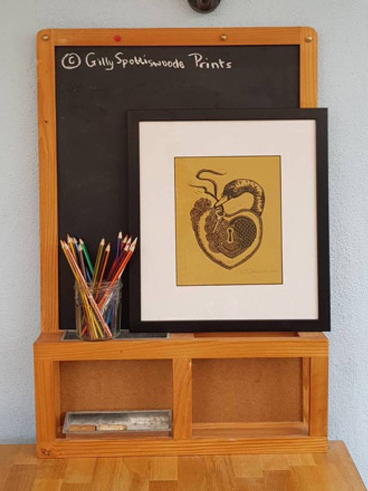 © Gilly Spottiswoode Prints